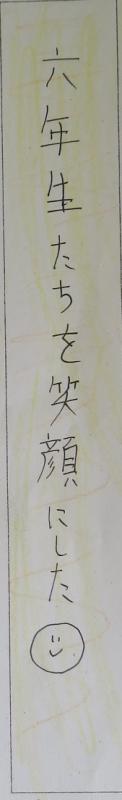 六年生たちを笑顔にした